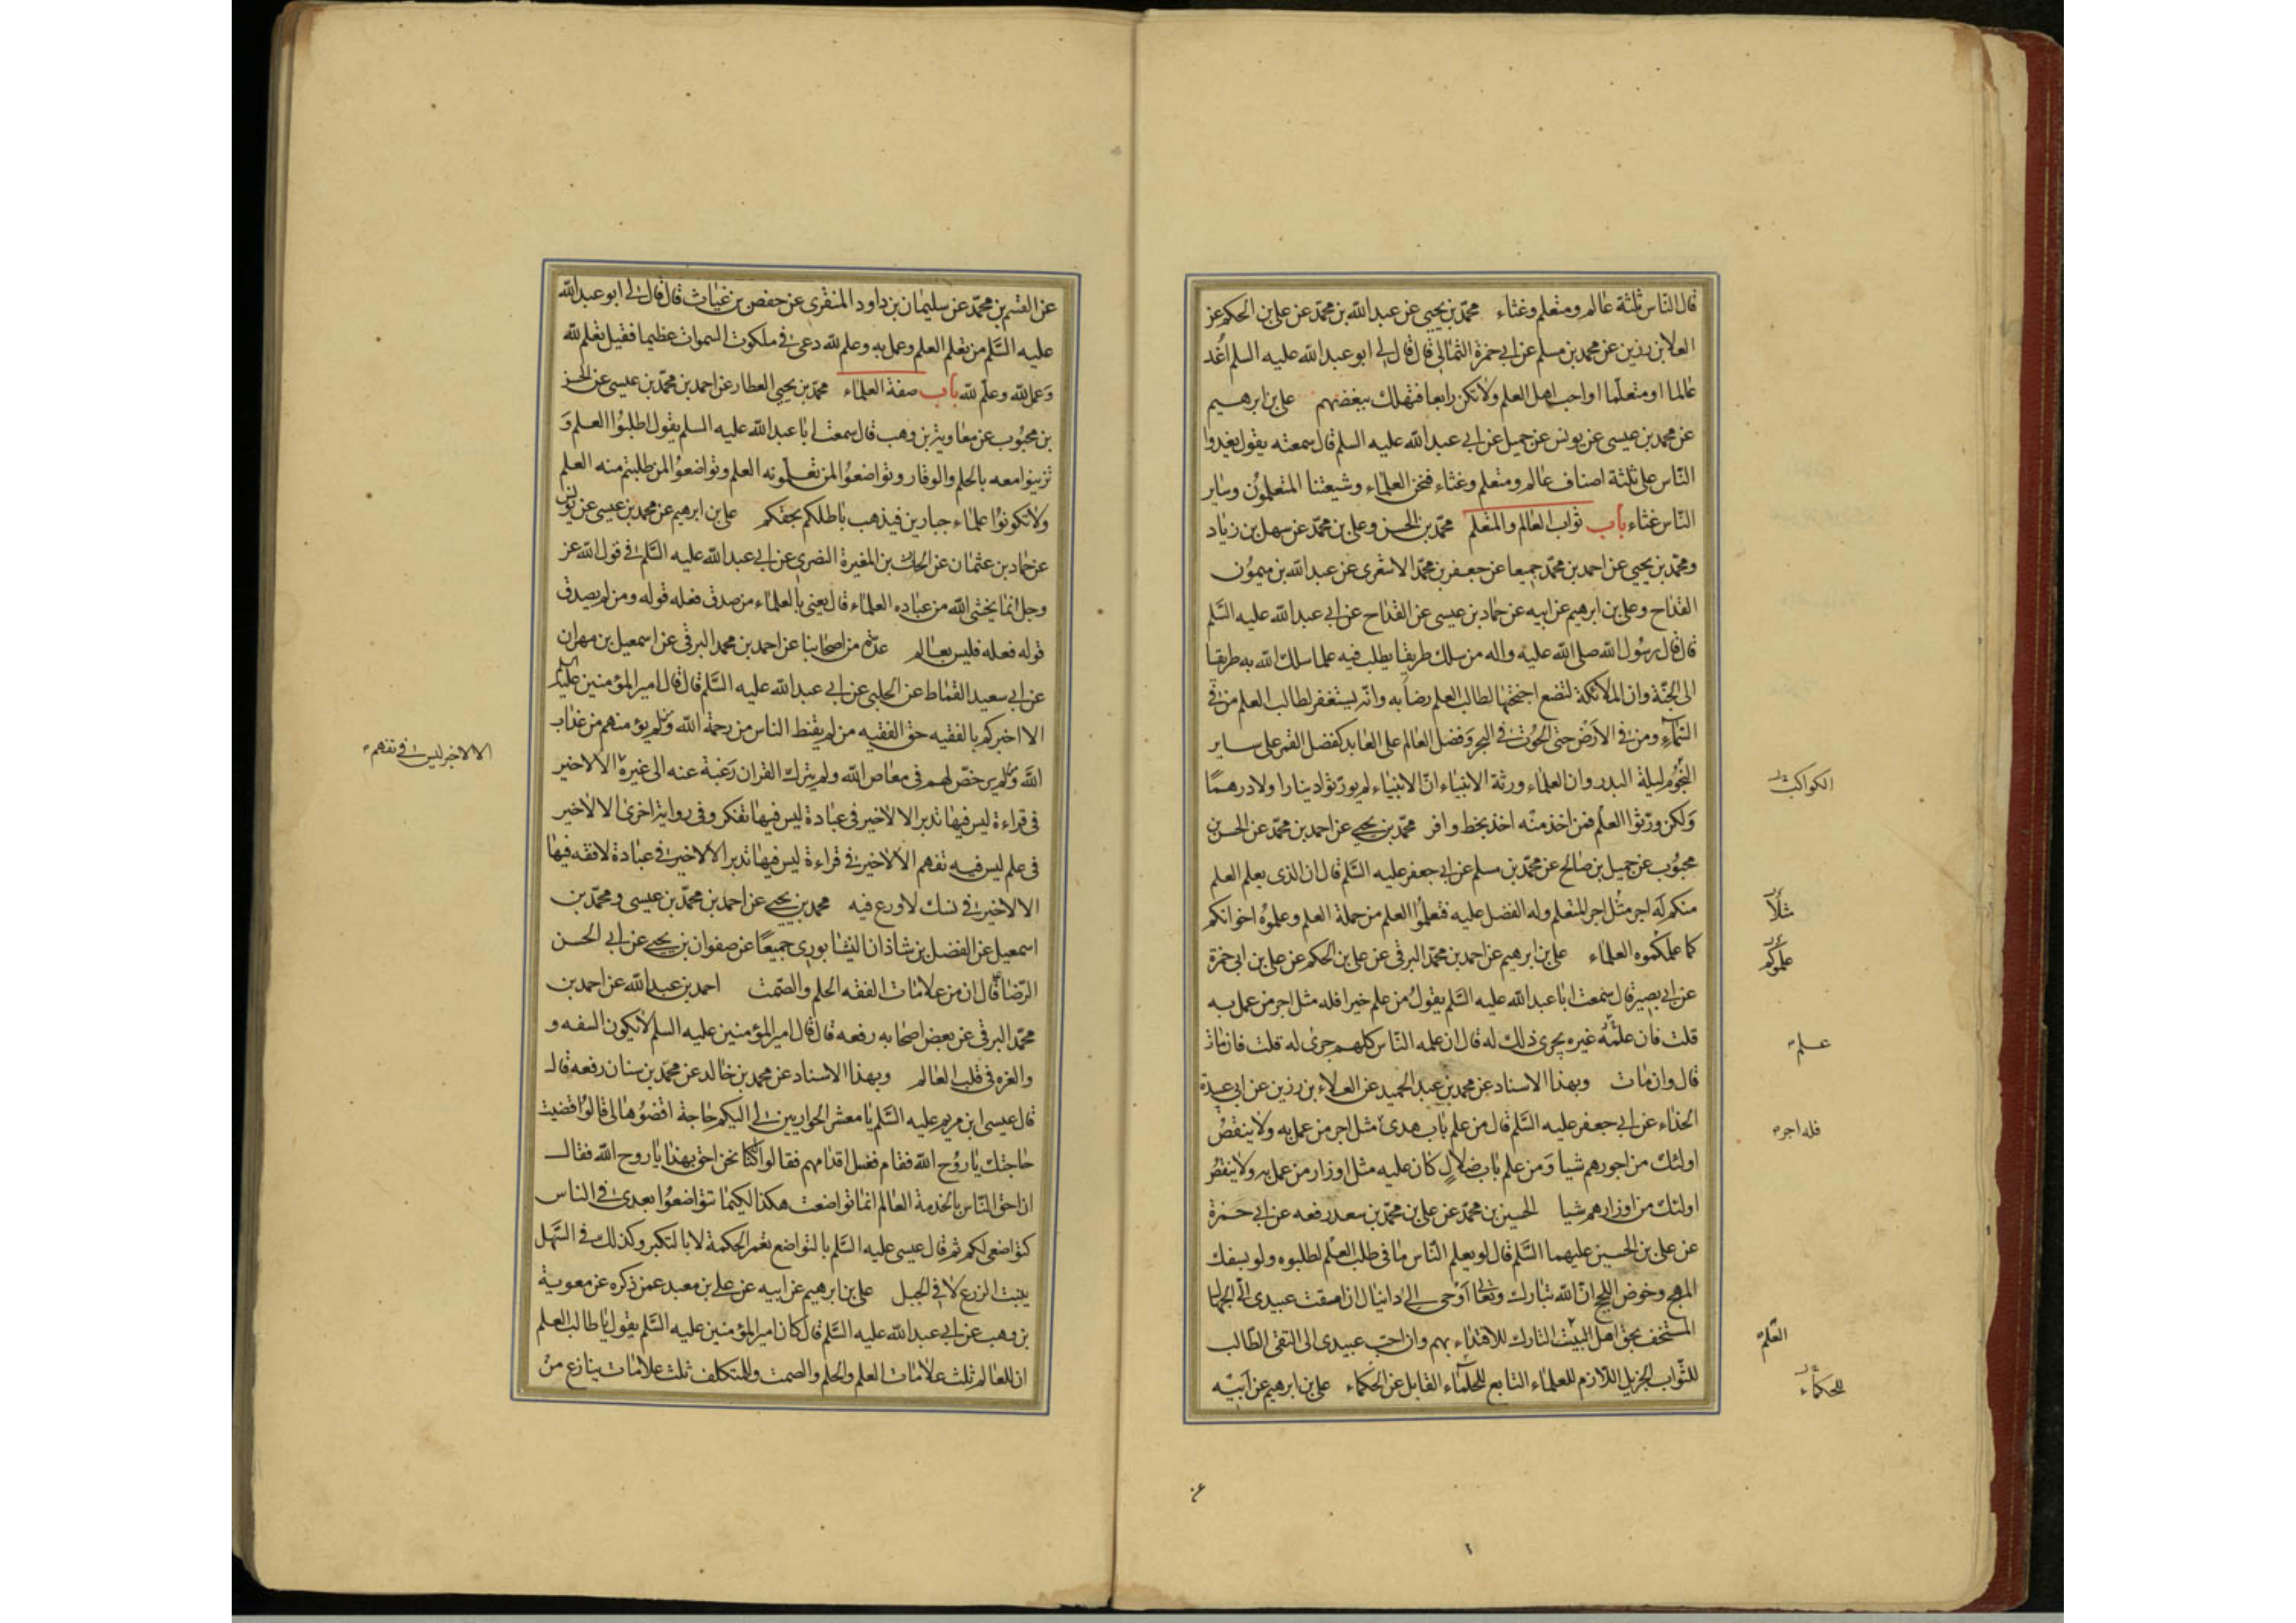 قال الناس ثلثة عالم ومتعلم وغثاء محمد بن يحيى عن عبد الله بن محمد عن علي بن الحكم عن
العلا بن رزين عن محمد بن مسلم عن ابي حمزة الثمالي قال قال لي ابو عبد الله عليه السلم اغد
عالما او متعلما او احب اهل العلم ولا تكن رابعا فتهلك ببغضهم علي بن ابرهيم
عن محمد بن عيسى عن يونس عن جميل عن ابي عبد الله عليه السلم قال سمعته يقول يغدوا
الناس على ثلثة اصناف عالم ومتعلم وغثاء فنحن العلماء وشيعتنا المتعلمون وساير
الناس غثاء باب ثواب العالم والمتعلم محمد بن الحسن وعلي بن محمد عن سهل بن زياد
ومحمد بن يحيى عن احمد بن محمد جميعا عن جعفر بن محمد الاشعري عن عبد الله بن ميمون
القداح وعلي بن ابرهيم عن ابيه عن حماد بن عيسى عن القداح عن ابي عبد الله عليه السلم
قال قال رسول الله صلى الله عليه واله من سلك طريقا يطلب فيه علما سلك الله به طريقا
الى الجنة وان الملائكة لتضع اجنحتها لطالب العلم رضا به وانه ليستغفر لطالب العلم من في
السماء ومن في الارض حتى الحوت في البحر وفضل العالم على العابد كفضل القمر على ساير
النجوم ليلة البدر وان العلماء ورثة الانبياء ان الانبياء لم يورثوا دينارا ولا درهما
الكواكب
ولكن ورثوا العلم فمن اخذ منه اخذ بحظ وافر محمد بن يحيى عن احمد بن محمد عن الحسن بن
محبوب عن جميل بن صالح عن محمد بن مسلم عن ابي جعفر عليه السلم قال ان الذي يعلم العلم
منكم له اجر مثل اجر المتعلم وله الفضل عليه فتعلموا العلم من حملة العلم وعلموه اخوانكم
مثلا
كما علمكموه العلماء علي بن ابرهيم عن احمد بن محمد البرقي عن علي بن الحكم عن علي بن ابي حمزة
علموكم
عن ابي بصير قال سمعت ابا عبد الله عليه السلم يقول من علم خيرا فله مثل اجر من عمل به
قلت فان علمه غيره يجري ذلك له قال ان علمه الناس كلهم جرى له قلت فان مات
علم
قال وان مات وبهذا الاسناد عن محمد بن عبد الحميد عن العلاء بن رزين عن ابي عبيدة
الحذاء عن ابي جعفر عليه السلم قال من علم باب هدى مثل اجر من عمل به ولا ينقص
فله اجر
اولئك من اجورهم شيا ومن علم باب ضلال كان عليه مثل اوزار من عمل به ولا ينقص
اولئك من اوزارهم شيا الحسين بن محمد عن علي بن محمد بن سعد رفعه عن ابي حمزة
عن علي بن الحسين عليهما السلم قال لو يعلم الناس ما في طلب العلم لطلبوه ولو بسفك
المهج وخوض اللجج ان الله تبارك وتعالى اوحى الى دانيال ان امقت عبيدي الى الجهال
المستخف بحق اهل البيت التارك للاقتداء بهم وان احب عبيدي الى التقي الطالب
العلم
للثواب الجزيل اللازم للعلماء التابع للحلماء القابل عن الحكماء علي بن ابرهيم عن ابيه
للحكماء
عن
عن القسم بن محمد عن سليمان بن داود المنقري عن حفص بن غياث قال قال لي ابو عبد الله
عليه السلم من تعلم العلم وعمل به وعلم لله دعي في ملكوت السموات عظيما فقيل تعلم لله
وعمل لله وعلم لله باب صفة العلماء محمد بن يحيى العطار عن احمد بن محمد بن عيسى عن الحسن
بن محبوب عن معاوية بن وهب قال سمعت ابا عبد الله عليه السلم يقول اطلبوا العلم و
تزينوا معه بالحلم والوقار وتواضعوا لمن تعلمونه العلم وتواضعوا لمن طلبتم منه العلم
ولا تكونوا علماء جبارين فيذهب باطلكم بحقكم علي بن ابرهيم عن محمد بن عيسى عن يونس
عن حماد بن عثمان عن الحرث بن المغيرة النصري عن ابي عبد الله عليه السلم في قول الله عز
وجل انما يخشى الله من عباده العلماء قال يعني بالعلماء من صدق فعله قوله ومن لم يصدق
قوله فعله فليس بعالم عدة من اصحابنا عن احمد بن محمد البرقي عن اسمعيل بن مهران
عن ابي سعيد القماط عن الحلبي عن ابي عبد الله عليه السلم قال قال امير المؤمنين عليه السلم
الا اخبركم بالفقيه حق الفقيه من لم يقنط الناس من رحمة الله ولم يؤمنهم من عذاب
الله ولم يرخص لهم في معاص الله ولم يترك القران رغبة عنه الى غيره الا لا خير
الا لا خير ليس في تفهم
في قراءة ليس فيها تدبر الا لا خير في عبادة ليس فيها تفكر وفي رواية اخرى الا لا خير
في علم ليس فيه تفهم الا لا خير في قراءة ليس فيها تدبر الا لا خير في عبادة لا فقه فيها
الا لا خير في نسك لا ورع فيه محمد بن يحيى عن احمد بن محمد بن عيسى ومحمد بن
اسمعيل عن الفضل بن شاذان النيشابوري جميعا عن صفوان بن يحيى عن ابي الحسن
الرضا قال ان من علامات الفقه الحلم والصمت احمد بن عبد الله عن احمد بن
محمد البرقي عن بعض اصحابه رفعه قال قال امير المؤمنين عليه السلم لا يكون السفه و
والغره في قلب العالم وبهذا الاسناد عن محمد بن خالد عن محمد بن سنان رفعه قال
قال عيسى ابن مريم عليه السلم يا معشر الحواريين لي اليكم حاجة اقضوها لي قالوا قضيت
حاجتك يا روح الله فقام فغسل اقدامهم فقالوا كنا نحن احق بهذا يا روح الله فقال
ان احق الناس بالخدمة العالم انما تواضعت هكذا لكيما تتواضعوا بعدي في الناس
كتواضعي لكم ثم قال عيسى عليه السلم بالتواضع تعمر الحكمة لا بالتكبر وكذلك في السهل
ينبت الزرع لا في الجبل علي بن ابرهيم عن ابيه عن علي بن معبد عمن ذكره عن معوية
بن وهب عن ابي عبد الله عليه السلم قال كان امير المؤمنين عليه السلم يقول يا طالب العلم
ان للعالم ثلث علامات العلم والحلم والصمت وللمتكلف ثلث علامات ينازع من